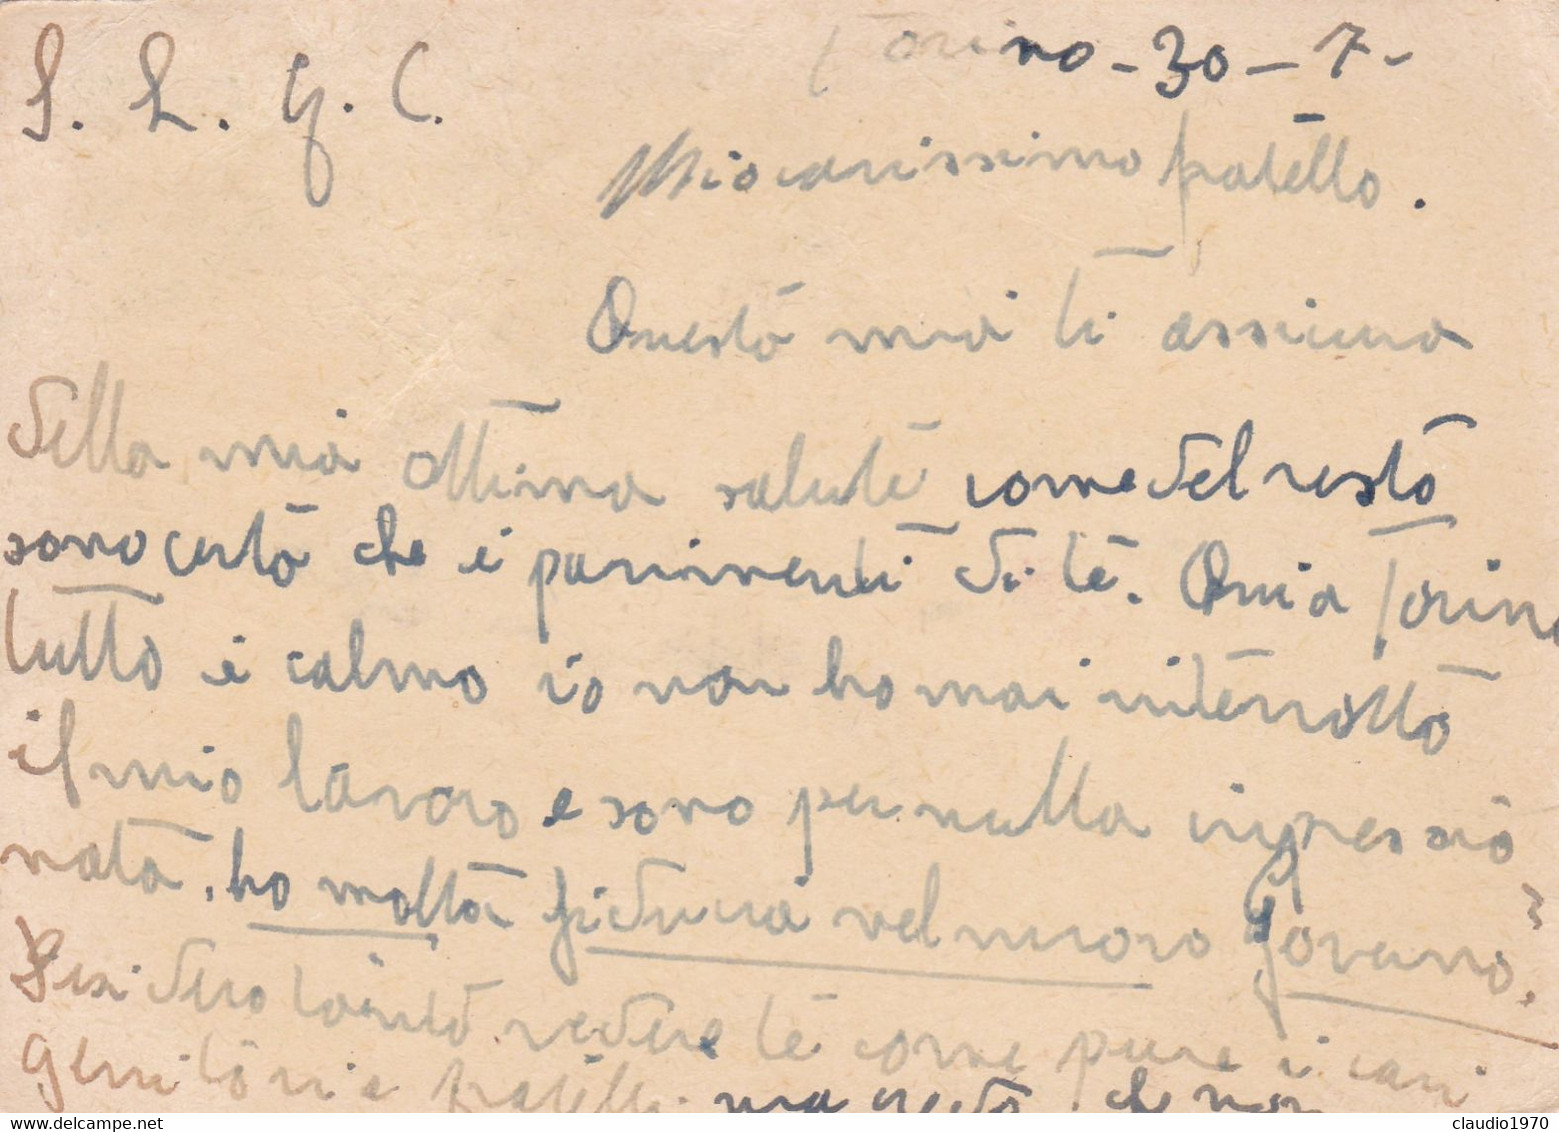 S. L. G. C.
Torino - 30 - 7 -
Mio carissimo fratello.
Questa mia ti assicura
della mia ottima salute come del resto
sono certo che è parimenti di te. Qui a Torino
tutto è calmo io non ho mai interrotto
il mio lavoro e sono per nulla inpressio
nata, ho molta fiducia nel nuovo Governo?
Desidero tanto vedere te come pure i cari
genitori e fratelli. ma credo che non
www.delcampe.net
claudio1970